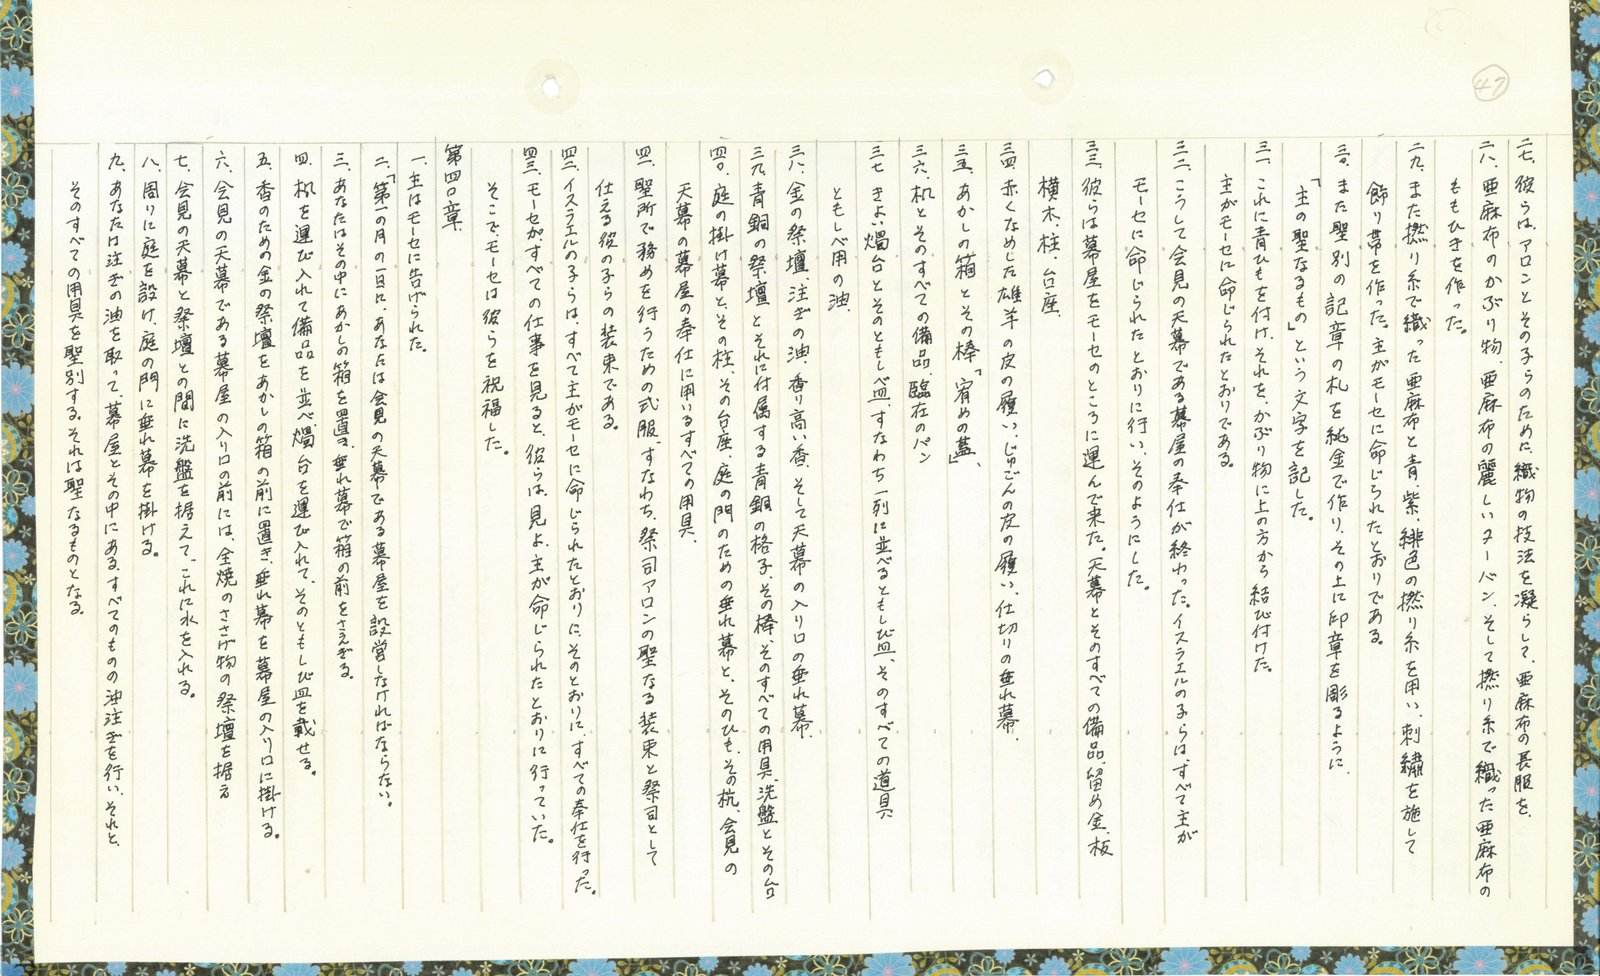 47
二七、彼らは、アロンとその子らのために、織物の技法を凝らして、亜麻布の長服を、
二八、亜麻布のかぶり物、亜麻布の麗しいターバン、そして撚り糸で織った亜麻布の
ももひきを作った。
二九、また撚り糸で織った亜麻布と青、紫、緋色の撚り糸を用い、刺繡を施して
飾り帯を作った。主がモーセに命じられたとおりである。
三〇、また聖別の記章の札を純金で作り、その上に印章を彫るように、
「主の聖なるもの」という文字を記した。
三一、これに青ひもを付け、それを、かぶり物に上の方から結び付けた。
主がモーセに命じられたとおりである。
三二、こうして会見の天幕である幕屋の奉仕が終わった。イスラエルの子らは、すべて主が
モーセに命じられたとおりに行い、そのようにした。
三三、彼らは幕屋をモーセのところに運んで来た。天幕とそのすべての備品、留め金、板
横木、柱、台座、
三四、赤くなめした雄羊の皮の履い、じゅごんの皮の履い、仕切りの垂れ幕、
三五、あかしの箱とその棒、「宥めの蓋」、
三六、机とそのすべての備品、臨在のパン
三七、きよい燭台とそのともしべ皿、すなわち一列に並べるともしび皿、そのすべての道具、
ともしべ用の油、
三八、金の祭壇、注ぎの油、香り高い香、そして天幕の入り口の垂れ幕、
三九、青銅の祭壇とそれに付属する青銅の格子、その棒、そのすべての用具、洗盤とその台
四〇、庭の掛け幕と、その柱、その台座、庭の門のための垂れ幕と、そのひも、その杭、会見の
天幕の幕屋の奉仕に用いるすべての用具、
四一、聖所で務めを行うための式服、すなわち、祭司アロンの聖なる装束と祭司として
仕える彼の子らの装束である。
四二、イスラエルの子らは、すべて主がモーセに命じられたとおりに、そのとおりに、すべての奉仕を行った。
四三、モーセがすべての仕事を見ると、彼らは、見よ、主が命じられたとおりに行っていた。
そこで、モーセは彼らを祝福した。
第四〇章
一、主はモーセに告げられた。
二、「第一の月の一日に、あなたは会見の天幕である幕屋を設営しなければならない。
三、あなたはその中にあかしの箱を置き、垂れ幕で箱の前をさえぎる。
四、机を運び入れて備品を並べ、燭台を運び入れて、そのともしび皿を載せる。
五、香のための金の祭壇をあかしの箱の前に置き、垂れ幕を幕屋の入り口に掛ける。
六、会見の天幕である幕屋の入り口の前には、全焼のささげ物の祭壇を据え
七、会見の天幕と祭壇との間に洗盤を据えて、これに水を入れる。
八、周りに庭を設け、庭の門に垂れ幕を掛ける。
九、あなたは注ぎの油を取って、幕屋とその中にある、すべてのものの油注ぎを行い、それと、
そのすべての用具を聖別する。それは聖なるものとなる。